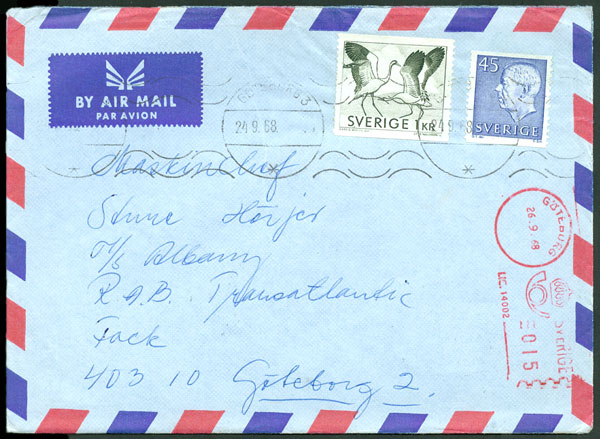 BY AIR MAIL
PAR AVION
SVERIGE 1 KR
45
SVERIGE
GÖTEBORG 3
24.9.68
24.9.68
Maskinchef
Sture Hörjer
M/S Albany
R.A.B. Transatlantic
Fack
403 10 Göteborg 2.
GÖTEBORG
26.9.68
LIC. 14002
SVERIGE
015